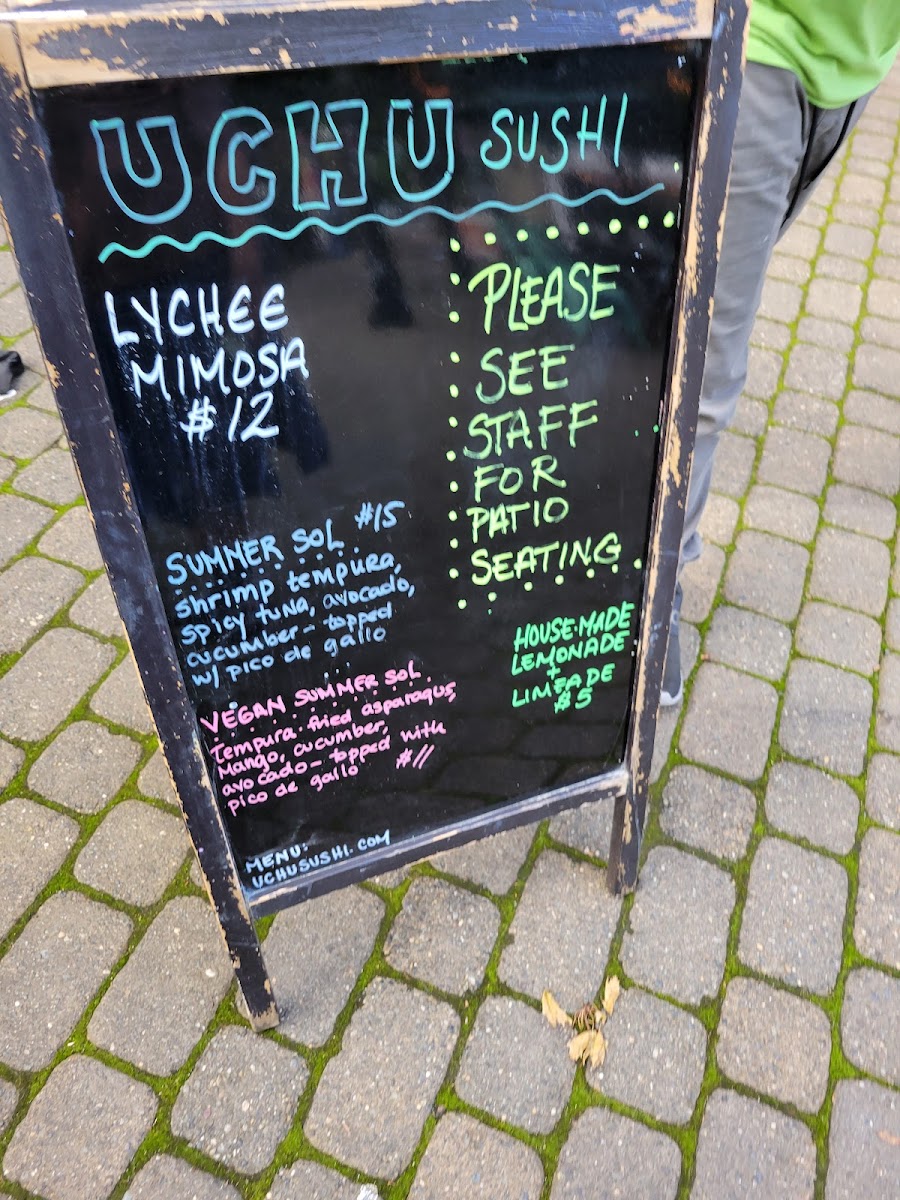 UCHU SUSHI
LYCHEE
MIMOSA
$12
SUMMER SOL $15
shrimp tempura,
spicy tuna, avocado,
cucumber - topped
w/ pico de gallo
VEGAN SUMMER SOL
tempura fried asparagus,
Mango, cucumber,
avocado - topped with
pico de gallo $11
MENU:
UCHUSUSHI.COM
PLEASE
SEE
STAFF
FOR
PATIO
SEATING
HOUSE-MADE
LEMONADE
+
LIMEADE
$5